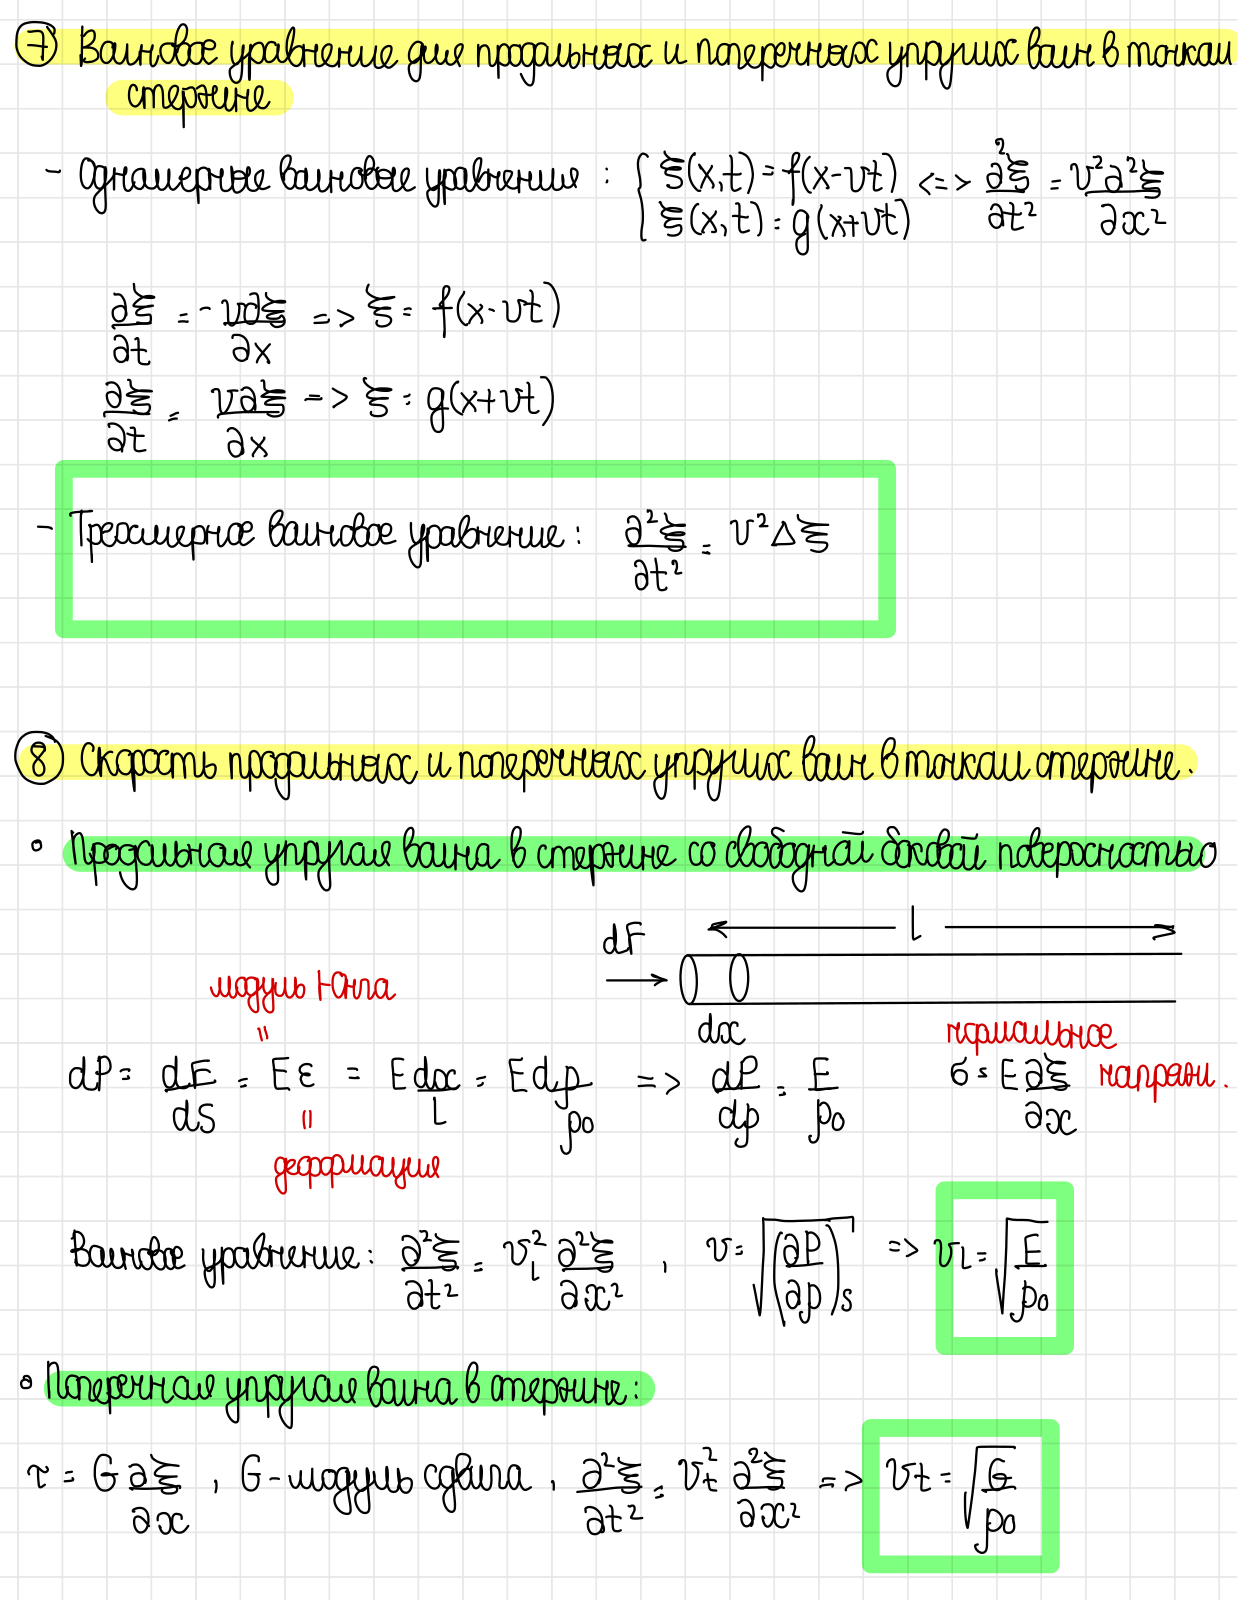 ⑦ Волновое уравнение для продольных и поперечных упругих волн в тонком
стержне
- Одномерные волновые уравнения : { ξ(x,t) = f(x-vt) <=> ∂²ξ/∂t² = v²∂²ξ/∂x²
ξ(x,t) = g(x+vt)
∂ξ/∂t = - v∂ξ/∂x => ξ = f(x-vt)
∂ξ/∂t = v∂ξ/∂x => ξ = g(x+vt)
- Трехмерное волновое уравнение : ∂²ξ/∂t² = v²Δξ
⑧ Скорость продольных и поперечных упругих волн в тонком стержне.
° Продольная упругая волна в стержне со свободной боковой поверхностью
dF l
модуль Юнга
dx
нормальное
напряж.
dP = dF/dS = Eε = E dx/l = E dρ/ρ₀ => dP/dρ = E/ρ₀ σ = E ∂ξ/∂x
деформация
Волновое уравнение : ∂²ξ/∂t² = v_l² ∂²ξ/∂x² , v = √(∂P/∂ρ)_S => v_l = √(E/ρ₀)
° Поперечная упругая волна в стержне :
τ = G ∂ξ/∂x , G - модуль сдвига , ∂²ξ/∂t² = v_t² ∂²ξ/∂x² => v_t = √(G/ρ₀)